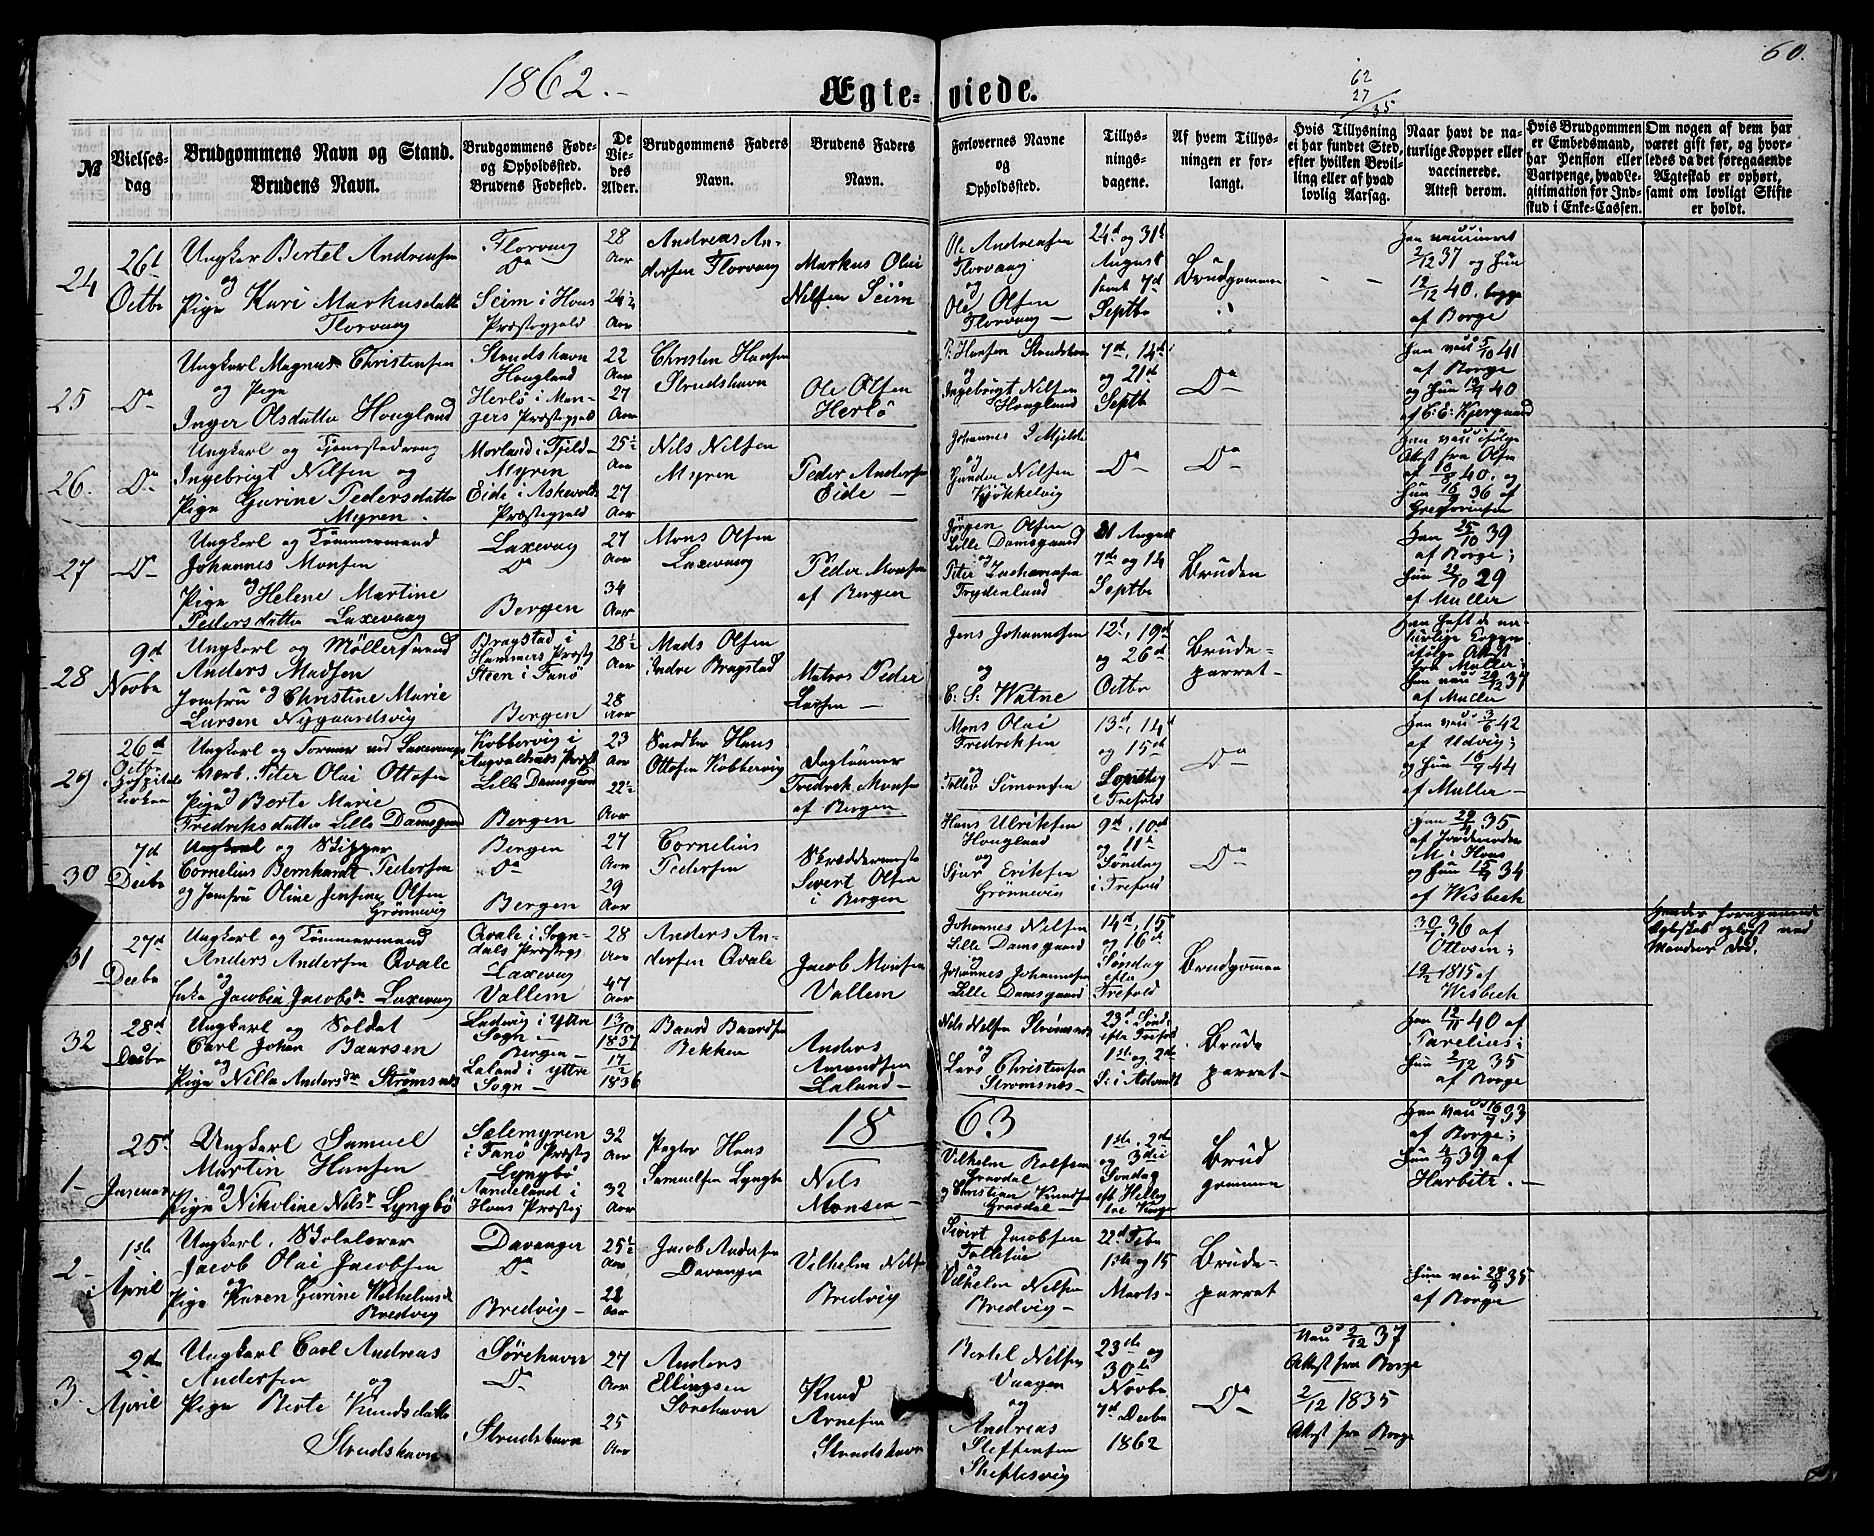 60.
1862.-
Ægte-
viede.
62
27
/35
№
Vielses-
dag
Brudgommens Navn og Stand.
Brudens Navn.
Brudgommens Føde-
og Opholdssted.
Brudens Fødested.
De
Vie-
des
Alder.
Brudgommens Faders
Navn.
Brudens Faders
Navn.
Forlovernes Navne
og
Opholdssted.
Tillys-
nings-
dagene.
Af hvem Tillys-
ningen er for-
langt.
Hvis Tillysning
ei har fundet Sted,
efter hvilken Bevil-
ling eller af hvad
lovlig Aarsag.
Naar havt de na-
turlige Kopper eller
vaccinerede.
Attest derom.
Hvis Brudgommen
er Embedsmand,
har Pension eller
Vartpenge, hvad Le-
gitimation for Ind-
skud i Enke-Cassen.
Om nogen af dem har
været gift før, og hvor-
ledes da det foregaaende
Ægteskab er ophørt,
samt om lovligt Skifte
er holdt.
24
26d
Octbr
Ungkar Bertel Andreasen
og
Pige Kari Markusdatter
Florvaag
Florvaag
Do
Seim i Hous
Præstegjeld
28
Aar
24½
Aar
Andreas An-
dersen Florvaag
Markus Olai
Nilsen Seim
Ole Andreasen
Florvaag
og
Ole Olsen
Florvaag -
24d og 31d
August
samt 7d
Septbr
Brudgommen
Han vaccineret
2/12 37 og hun
12/12 40. begge
af Borge
25
Do
Ungkarl Magnus Christensen
og Pige
Inger Olsdatter Hougland
Strudshavn
Hougland
Herlö i Man-
gers Præstegjeld
22
Aar
27
Aar
Christen Hansen
Strudshavn
Ole Olsen
Herlö
P. Hansen Strudshavn
og
Ingebrigt Nilsen
Hougland
7d, 14d
og 21d
Septbr
Do
Han vac 5/10 41
af Borge
og hun 40
af C. E. Kjergaard
26.
Do
Ungkarl og Tjenestedreng
Ingebrigt Nilsen og
Pige Gurine Pedersdatter
Myren.
Morland i Fjeld-
Myren
Eide i Askevolds
Præstegjeld
25½
Aar
27
Aar
Nils Nilsen
Myren
Peder Andersen
Eide -
Johannes I Mjelde
og
Gunder Nilsen
Kjökkelvig
Do
Do
Han vac ifølge
Attest fra Olsen
af 40. og
hun 36 af
Gregoriusen
27
Do
Ungkarl og Tømmermand
Johannes Monsen
og
Pige Helene Martine
Pedersdatter Laxevaag
Laxevaag
Do
Bergen
27
Aar
34
Aar
Mons Olsen
Laxevaag
Peder Monsen
af Bergen
Jörgen Olsen
Lille Damsgaard
og
Peter Zachariasen
Frydenlund
31 August
7de og 14
Septbr
Bruden
Han 25/10 39
af Borge;
hun 29
af Muller
28
9d
Novbr
Ungkarl og Möllersvend
Anders Madsen
og
Jomfru Christine Marie
Larsen Nygaardsvig
Bragstad i
Hammers Præstg
Steen i Fanö
Bergen
28½
Aar
28
Aar
Mads Olsen
Indre Bragstad
Matros Peder
Larsen -
Jens Johannesen
og
C. S. Watne
12d, 19d
og 26d
Octbr
Brude-
parret-
Han haft de na-
turlige Kopper
ifølge Attest
fra Muller;
hun vac 37
af Muller
29
26d
Octbr
i Hospitals
Kirken
Ungkarl og Former ved Laxevaags
Værk. Peter Olai Ottosen
og
Pige Berte Marie
Fredriksdatter Lille Damsgaard
Kobbervig i
Augvaldsnæs Præst
Lille Damsgaard
Bergen
23
Aar
22½
Aar
Snedker Hans
Ottosen Kobbervig
Daglönner
Fredrik Monsen
af Bergen
Mons Olai
Fredriksen
og
Tollev Simonsen
13d, 14d
og 15d
Søndag
e Trefold
Do
Han vac 3/6 42
af Udvig;
og hun 16/9 44
af Muller -
30
7d
Decbr
Ungkarl og Skipper
Cornelius Bernhardt Pedersen
og Jomfru Oline Jensine Olsen
Grönnevig
Bergen
Do
Bergen
27
Aar
29
Aar
Cornelius
Pedersen
Skreddermester
Sivert Olsen
i Bergen
Hans Ulriksen
Hougland
og
Sjur Eriksen
Grönnevig
9d, 10d
og 11te
Søndag
i Trefold
Do
Han 35
af Jordemoder
M. i Hous
og hun 34
af Wisbech
31
27d
Decbr
Ungkarl og Tømmermand
Anders Andersen Qvale
og
Enke Jacobia Jacobsdr Laxevaag
Qvale i Sogn-
dals Præstegj
Laxevaag
Vallem
28
Aar
47
Aar
Anders An-
dersen Qvale
Jacob Monsen
Vallem
Johannes Nilsen
Lille Damsgaard
og
Johannes Johannesen
Lille Damsgaard
14d, 15
og 16de
Søndag
efter
Trefold
Brudgommen
30/9 36 af
Ottosen;
19/2 1815 af
Wisbech
Hendes foregaaende
Ægteskab oplöst ved
Mandens Död.
32
28d
Decbr
Ungkarl og Soldat
Carl Johan Baarsen
og
Pige Nille Andersdr Strömsnes
Ladvig i Yttre
Sogn -
Bergen -
Laland i Yttre
Sogn -
13/10
1837
17/2
1836
Baard Baardsen
Bekken
Anders
Amundsen
Laland -
Nils Nilsen Strömsnes
og
Lars Christensen
Strömsnes -
23d Sönd
efter Trefold
1ste og 2de
S. i Advendt
Brude
parret -
Han 12/11 40 af
Carelius;
hun 2/12 35
af Borge
1863
1-
25d
Januar
Ungkarl Samuel
Martin Hansen
og
Pige Nikoline Nilsdr Lyngbö
Selemyren
i Fanö Præstg
Lyngbö
Aandeland i
Hous Præstegj
32
Aar
32
Aar
Pagter Hans
Samuelsen Lyngbö
Nils
Monsen -
Vilhelm Rolfsen
Gravdal
og Christian Knudsen
Gravdal -
1ste, 2de
og 3die
Søndag
eft Hellig
tre Konger
Brud
gommen
Han vac 16/9 33
af Borge;
hun 4/9 39 af
Harbitz. -
2-
1ste
April
Ungkarl, Skolelærer
Jacob Olai Jacobsen
og
Pige Karen Gurine Wilhelmsdr
Bredvig
Davanger
Do
Bredvig -
25½
Aar
28
Aar
Jacob Andersen
Davanger
Vilhelm Nilsen
Bredvig
Sivert Jacobsen
Follesöe
og
Vilhelm Nilsen
Bredvig -
22d Febr
1ste og 15
Marts -
Brude-
parret
Hun vac 28/9 35
af Borge
3.
2de
April
Ungkarl Carl Andreas
Andersen og
Pige Berte Knudsdatter
Strudshavn
Sörehavn
Do
Strudshavn
27
Aar
25
Aar
Anders
Ellingsen
Sörehavn
Knud
Arnesen
Strudshavn
Bertel Nilsen
Vaagen
og
Andreas
Steffensen
23de og
30te
Novbr
7d Decbr
1862
Do
Vac 2/12 37
Attest fra Borge
2/12 1835
Attest fra Borge